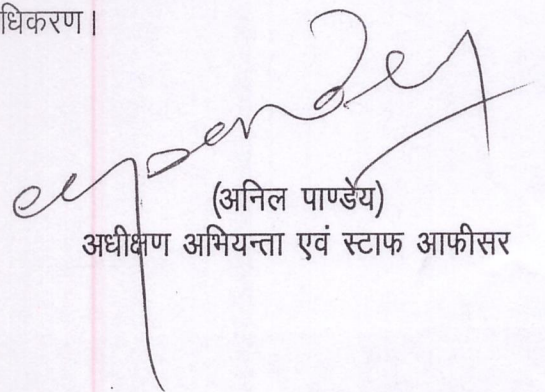 धिकरण।
(अनिल पाण्डेय)
अधीक्षण अभियन्ता एवं स्टाफ आफीसर